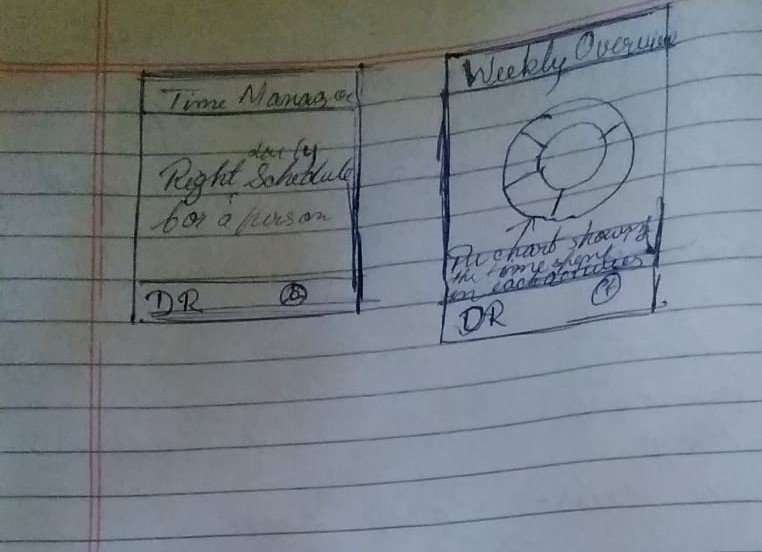 Time Manager
daily
Right Schedule
for a person
DR
Weekly Overview
Pie chart showing
the time spent
on each activities
DR